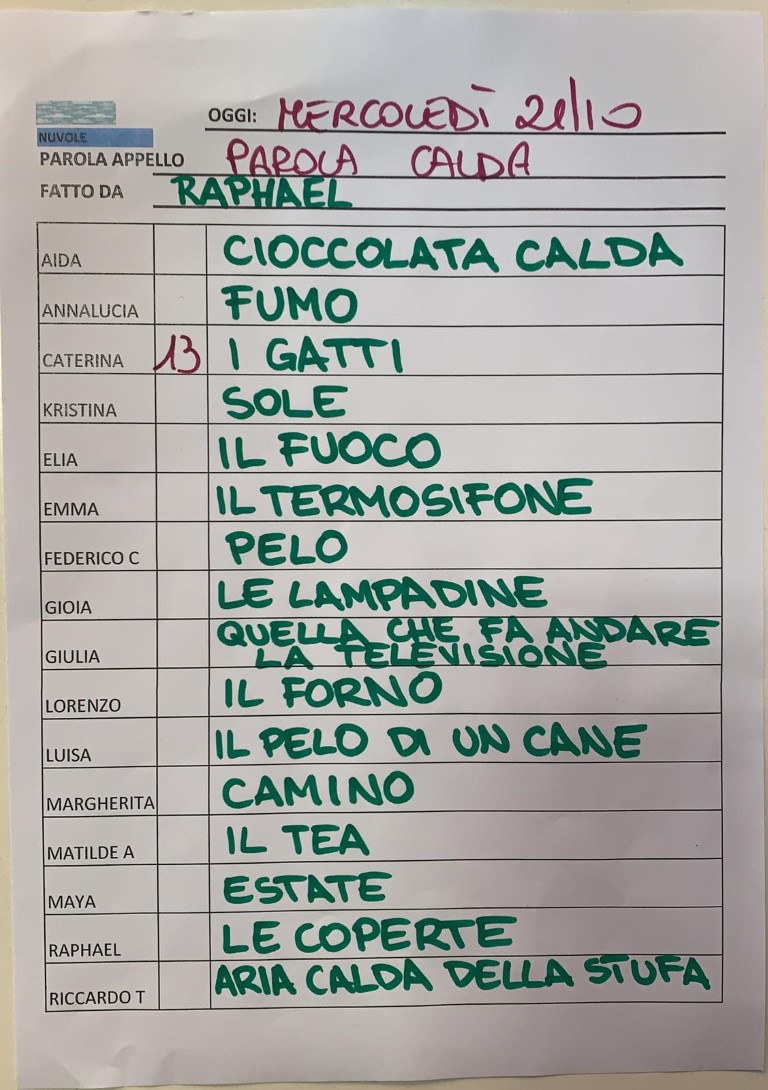 OGGI: MERCOLEDÌ 21/10
NUVOLE
PAROLA APPELLO PAROLA CALDA
FATTO DA RAPHAEL
AIDA CIOCCOLATA CALDA
ANNALUCIA FUMO
CATERINA 13 I GATTI
KRISTINA SOLE
ELIA IL FUOCO
EMMA IL TERMOSIFONE
FEDERICO C PELO
GIOIA LE LAMPADINE
GIULIA QUELLA CHE FA ANDARE
LA TELEVISIONE
LORENZO IL FORNO
LUISA IL PELO DI UN CANE
MARGHERITA CAMINO
MATILDE A IL TEA
MAYA ESTATE
RAPHAEL LE COPERTE
RICCARDO T ARIA CALDA DELLA STUFA